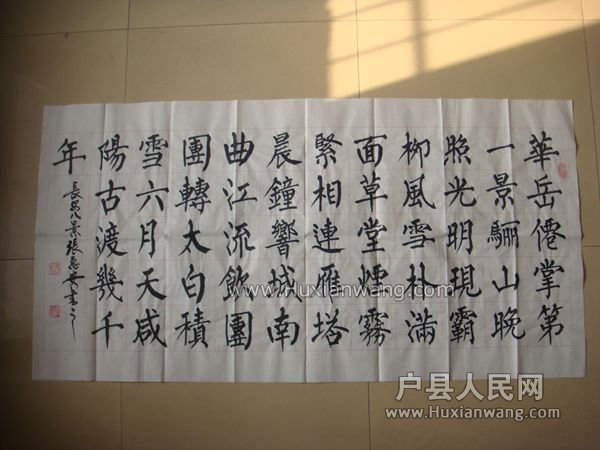 華岳僊掌第
一景驪山晚
照光明現霸
柳風雪朴滿
面草堂煙霧
緊相連雁塔
晨鐘響城南
曲江流飲團
團轉太白積
雪六月天咸
陽古渡幾千
年
長安八景張書之
www.Huxianwang.com
户县人民网
www.Huxianwang.com